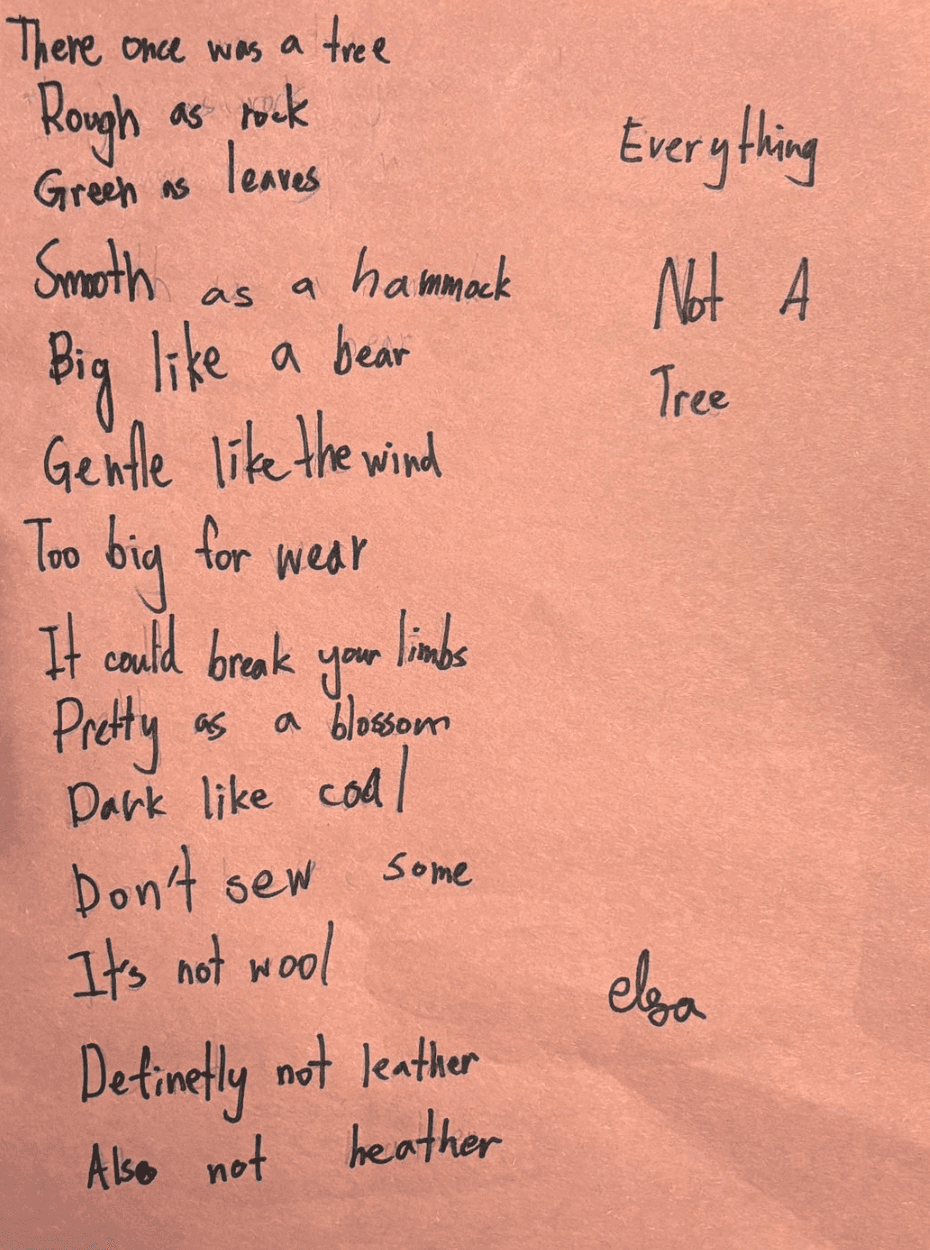 There once was a tree
Rough as rock
Green as leaves
Smooth as a hammock
Big like a bear
Gentle like the wind
Too big for wear
It could break your limbs
Pretty as a blossom
Dark like coal
Don't sew some
It's not wool
Definetly not leather
Also not heather
Everything
Not A
Tree
elsa